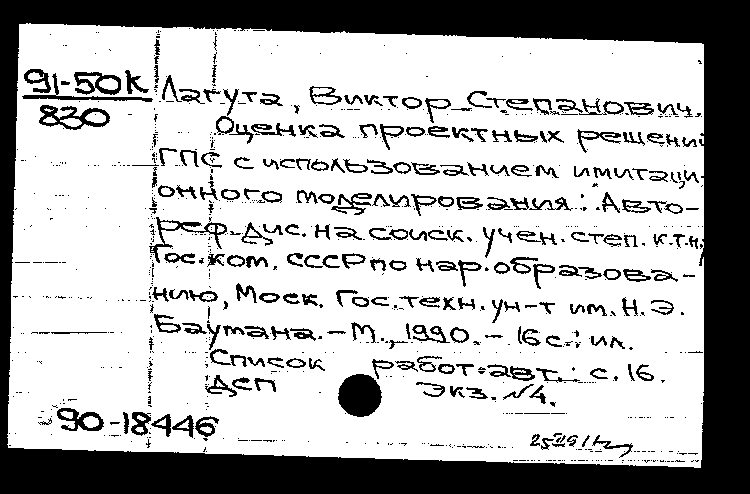 91-50К
830
Лагута, Виктор Степанович.
Оценка проектных решений
ГПС с использованием имитаци-
онного моделирования: Авто-
реф. дис. на соиск. учен. степ. к.т.н.
Гос. ком. СССР по нар. образова-
нию, Моск. Гос. техн. ун-т им. Н.Э.
Баумана. – М., 1990. – 16 с.: ил.
Список работ авт.: с. 16.
ДСП Экз. №4.
90-18446